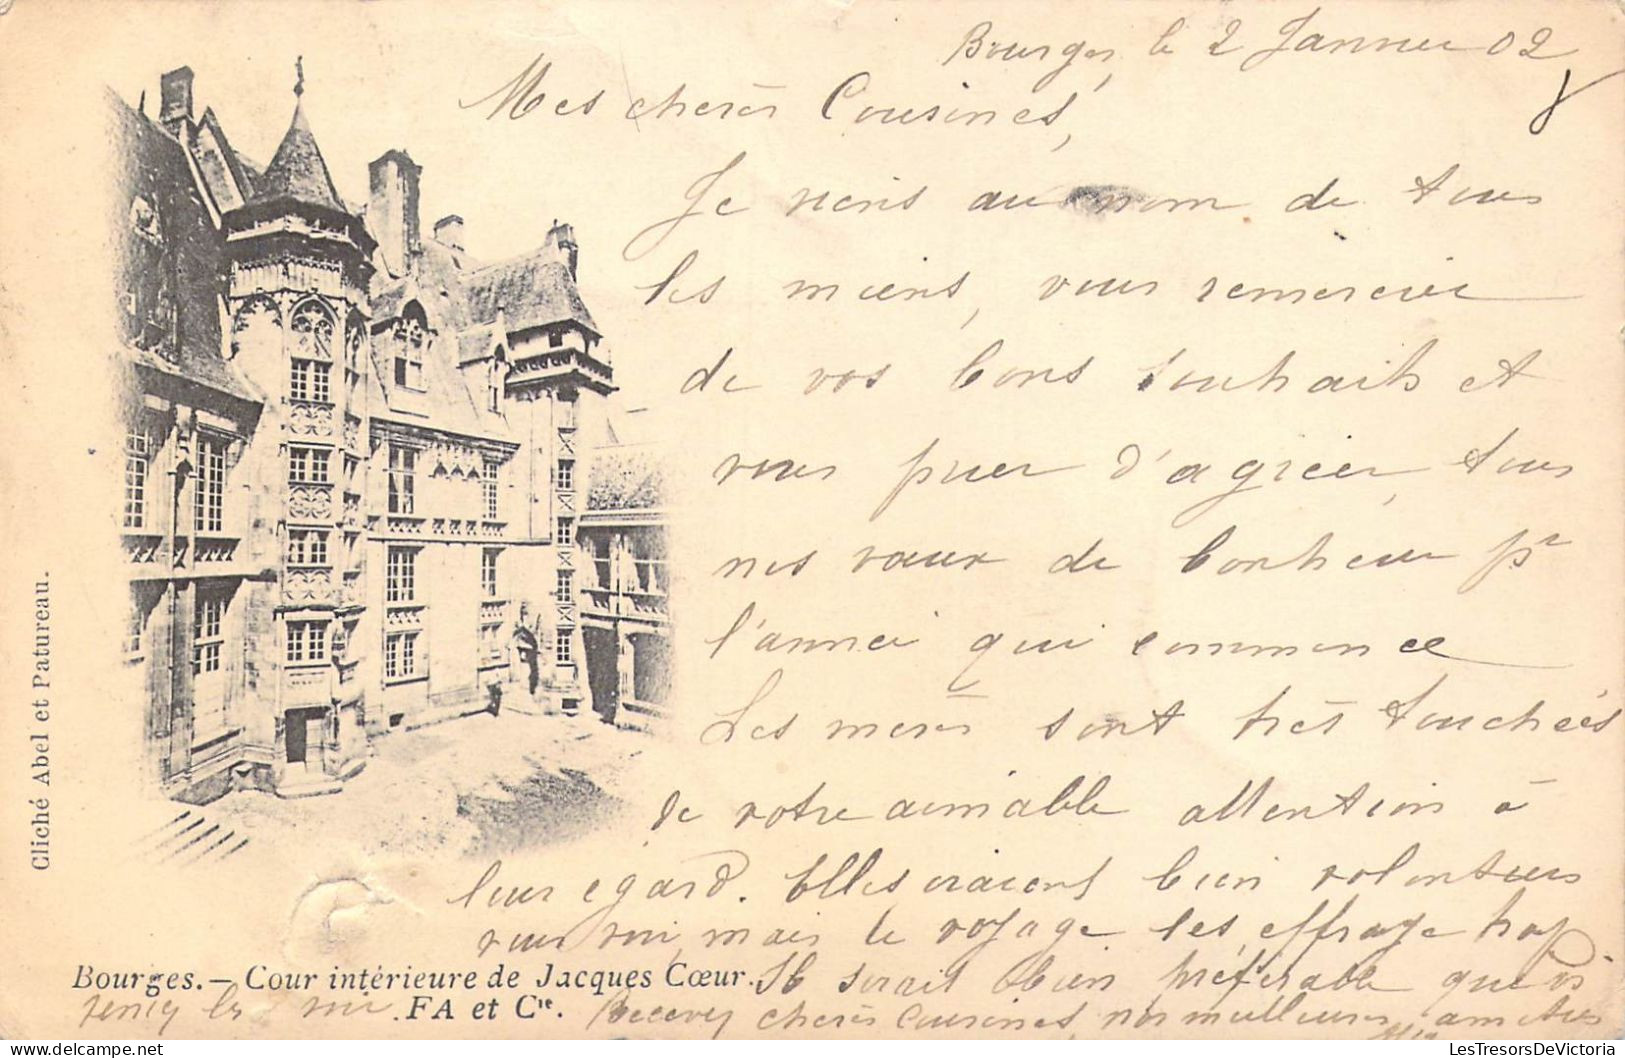 Bourges, le 2 Janvier 02
Mes chères Cousines,
Je viens au nom de tous
les miens, vous remercier
de vos bons souhaits et
vous prier d'agréer, tous
nos vœux de bonheur pr
l'année qui commence
Les mères sont très touchées
de votre aimable attention à
leur égard. Elles iraient bien volontiers
vous voir, mais le voyage les effraye trop
Il serait bien préférable que vs
veniez les voir
Recevez chères Cousines, nos meilleures amitiés
Bourges. — Cour intérieure de Jacques Cœur.
FA et Cie.
Cliché Abel et Patureau.
LesTresorsDeVictoria